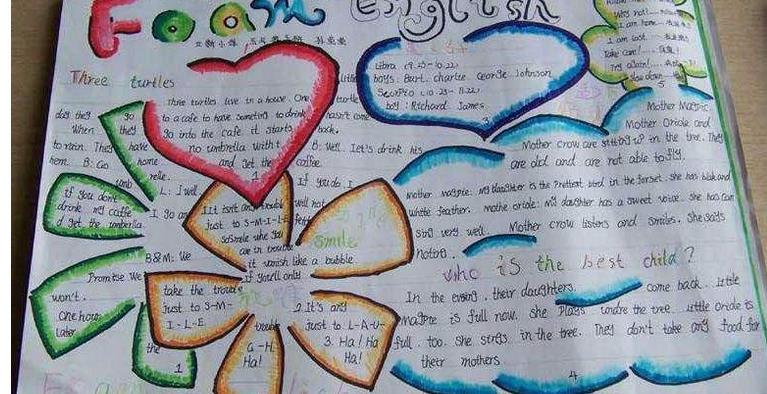 Foam English
Three turtles
three turtles live in a house. One
day they go to a cafe to have someting to drink
When they go into the cafe it starts
to rain. They have no umbrella with t
hem. B: Go home and get the
umb relle.
Little
turtle
hasn't come
back.
B: Well. Let's drink his
coffee.
1
L: I will
if you don't
drink my caffe
I go an
d get the umbrella.
B&M: We
Promise We
won't.
One hour
Later
the
1
If you do, I
will not
1It isn't any trouble
just to S-M-I-L-E
So smile whe you
are in trouble
it vanish like a bubble
If you'll only
take the trouble
just to S-M-
I-L-E
smile
2 It's any
trouble
just to L-A-U-
G-H
3. Ha! Ha
Ha!
Ha!
Libra (9.23-10.22)
boys: Bart. charlie George Johnson
Scorpio (10.23-11.22)
boy: Richard James
3
Why not!
I am home
I am lost
Take care!
Try again!
Slow down
5
Mother Magpie.
Mother Oriole and
Mother crow are sitting up in the tree. They
are old and are not able to fly.
Mother magpie: my daughter is the Prettest bird in the forset. she has blak and
white feather. mothe oriole: my daughter has a sweet voice. she has can
sing very well. Mother crow listers and smiles. She says
noting.
who is the best child?
In the evering, their daughters come back. Little
Magpie is full now. She plays undre the tree. Little Oriole is
full. too. She strgs in the tree. They don't take any food for
their mothers
4